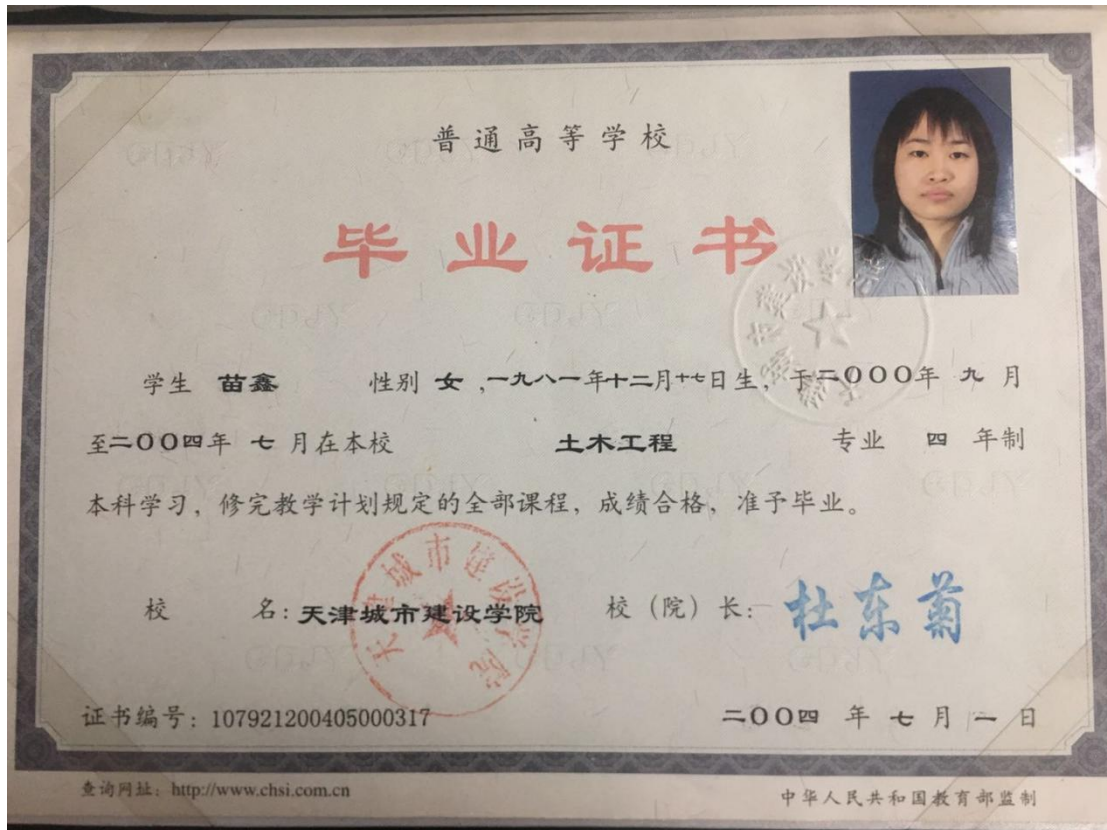 普通高等学校
毕业证书
学生 苗鑫 性别 女 ,一九八一年十二月十七日生，于二〇〇〇年 九 月
至二〇〇四年 七 月在本校 土木工程 专业 四 年制
本科学习，修完教学计划规定的全部课程，成绩合格，准予毕业。
校 名：天津城市建设学院 校（院）长：杜东菊
天津城市建设学院
证书编号：107921200405000317 二〇〇四 年 七 月 一 日
查询网址：http://www.chsi.com.cn 中华人民共和国教育部监制